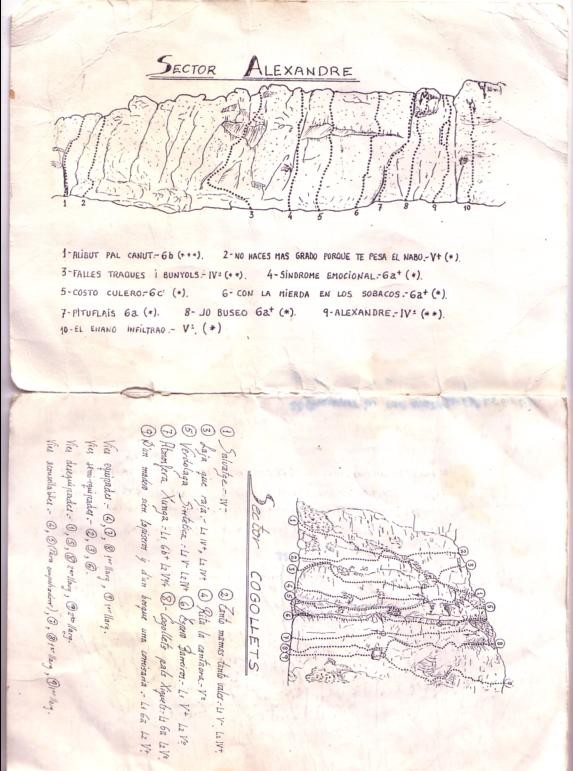 SECTOR ALEXANDRE
1 2 3 4 5 6 7 8 9 10
1-ALIBUT PAL CANUT.-6b (***). 2-NO HACES MAS GRADO PORQUE TE PESA EL NABO.-V+ (*).
3-FALLES TRAQUES i BUNYOLS.-IVº (**). 4-SÍNDROME EMOCIONAL.-6a+ (*).
5-COSTO CULERO.-6c' (*). 6-CON LA MIERDA EN LOS SOBACOS.-6a+ (*).
7-PITUFLAIS 6a (*). 8-JO BUSEO 6a+ (*). 9-ALEXANDRE.-IVº (**).
10-EL ENANO INFILTRAO.- Vº. (*)
SECTOR COGOLLETS
① Salvatge.-IV- ② Tanto mames tanto vales.-L1 V- L2 IV+
③ Laja que raja.-L1 IV+, L2 IV+ ④ Rita la cantaora.-Vº
⑤ Verdolaga Sintética.-L1 V- L2 IVº ⑥ L1 V+ L2 Vº
⑦ Atmosfera Xunga.-L1 6b L2 ⑧-Cogollets pals Xiquets.-L1 6a L2 Vº
⑨ D'un madero sien lapiseros y d'un bosque una comisaria.-L1 6a L2 Vº
Vies equipades.-④,⑦,⑧ 1er llarg, ⑨ 1er llarg.
Vies semi-equipades.-②,③,⑥.
Vies desequipades.-①,⑤,⑧ 2on llarg, ⑨ 2on llarg.
Vies aconsellables.-④, ⑦ 1er llarg, ⑨ 1er llarg.